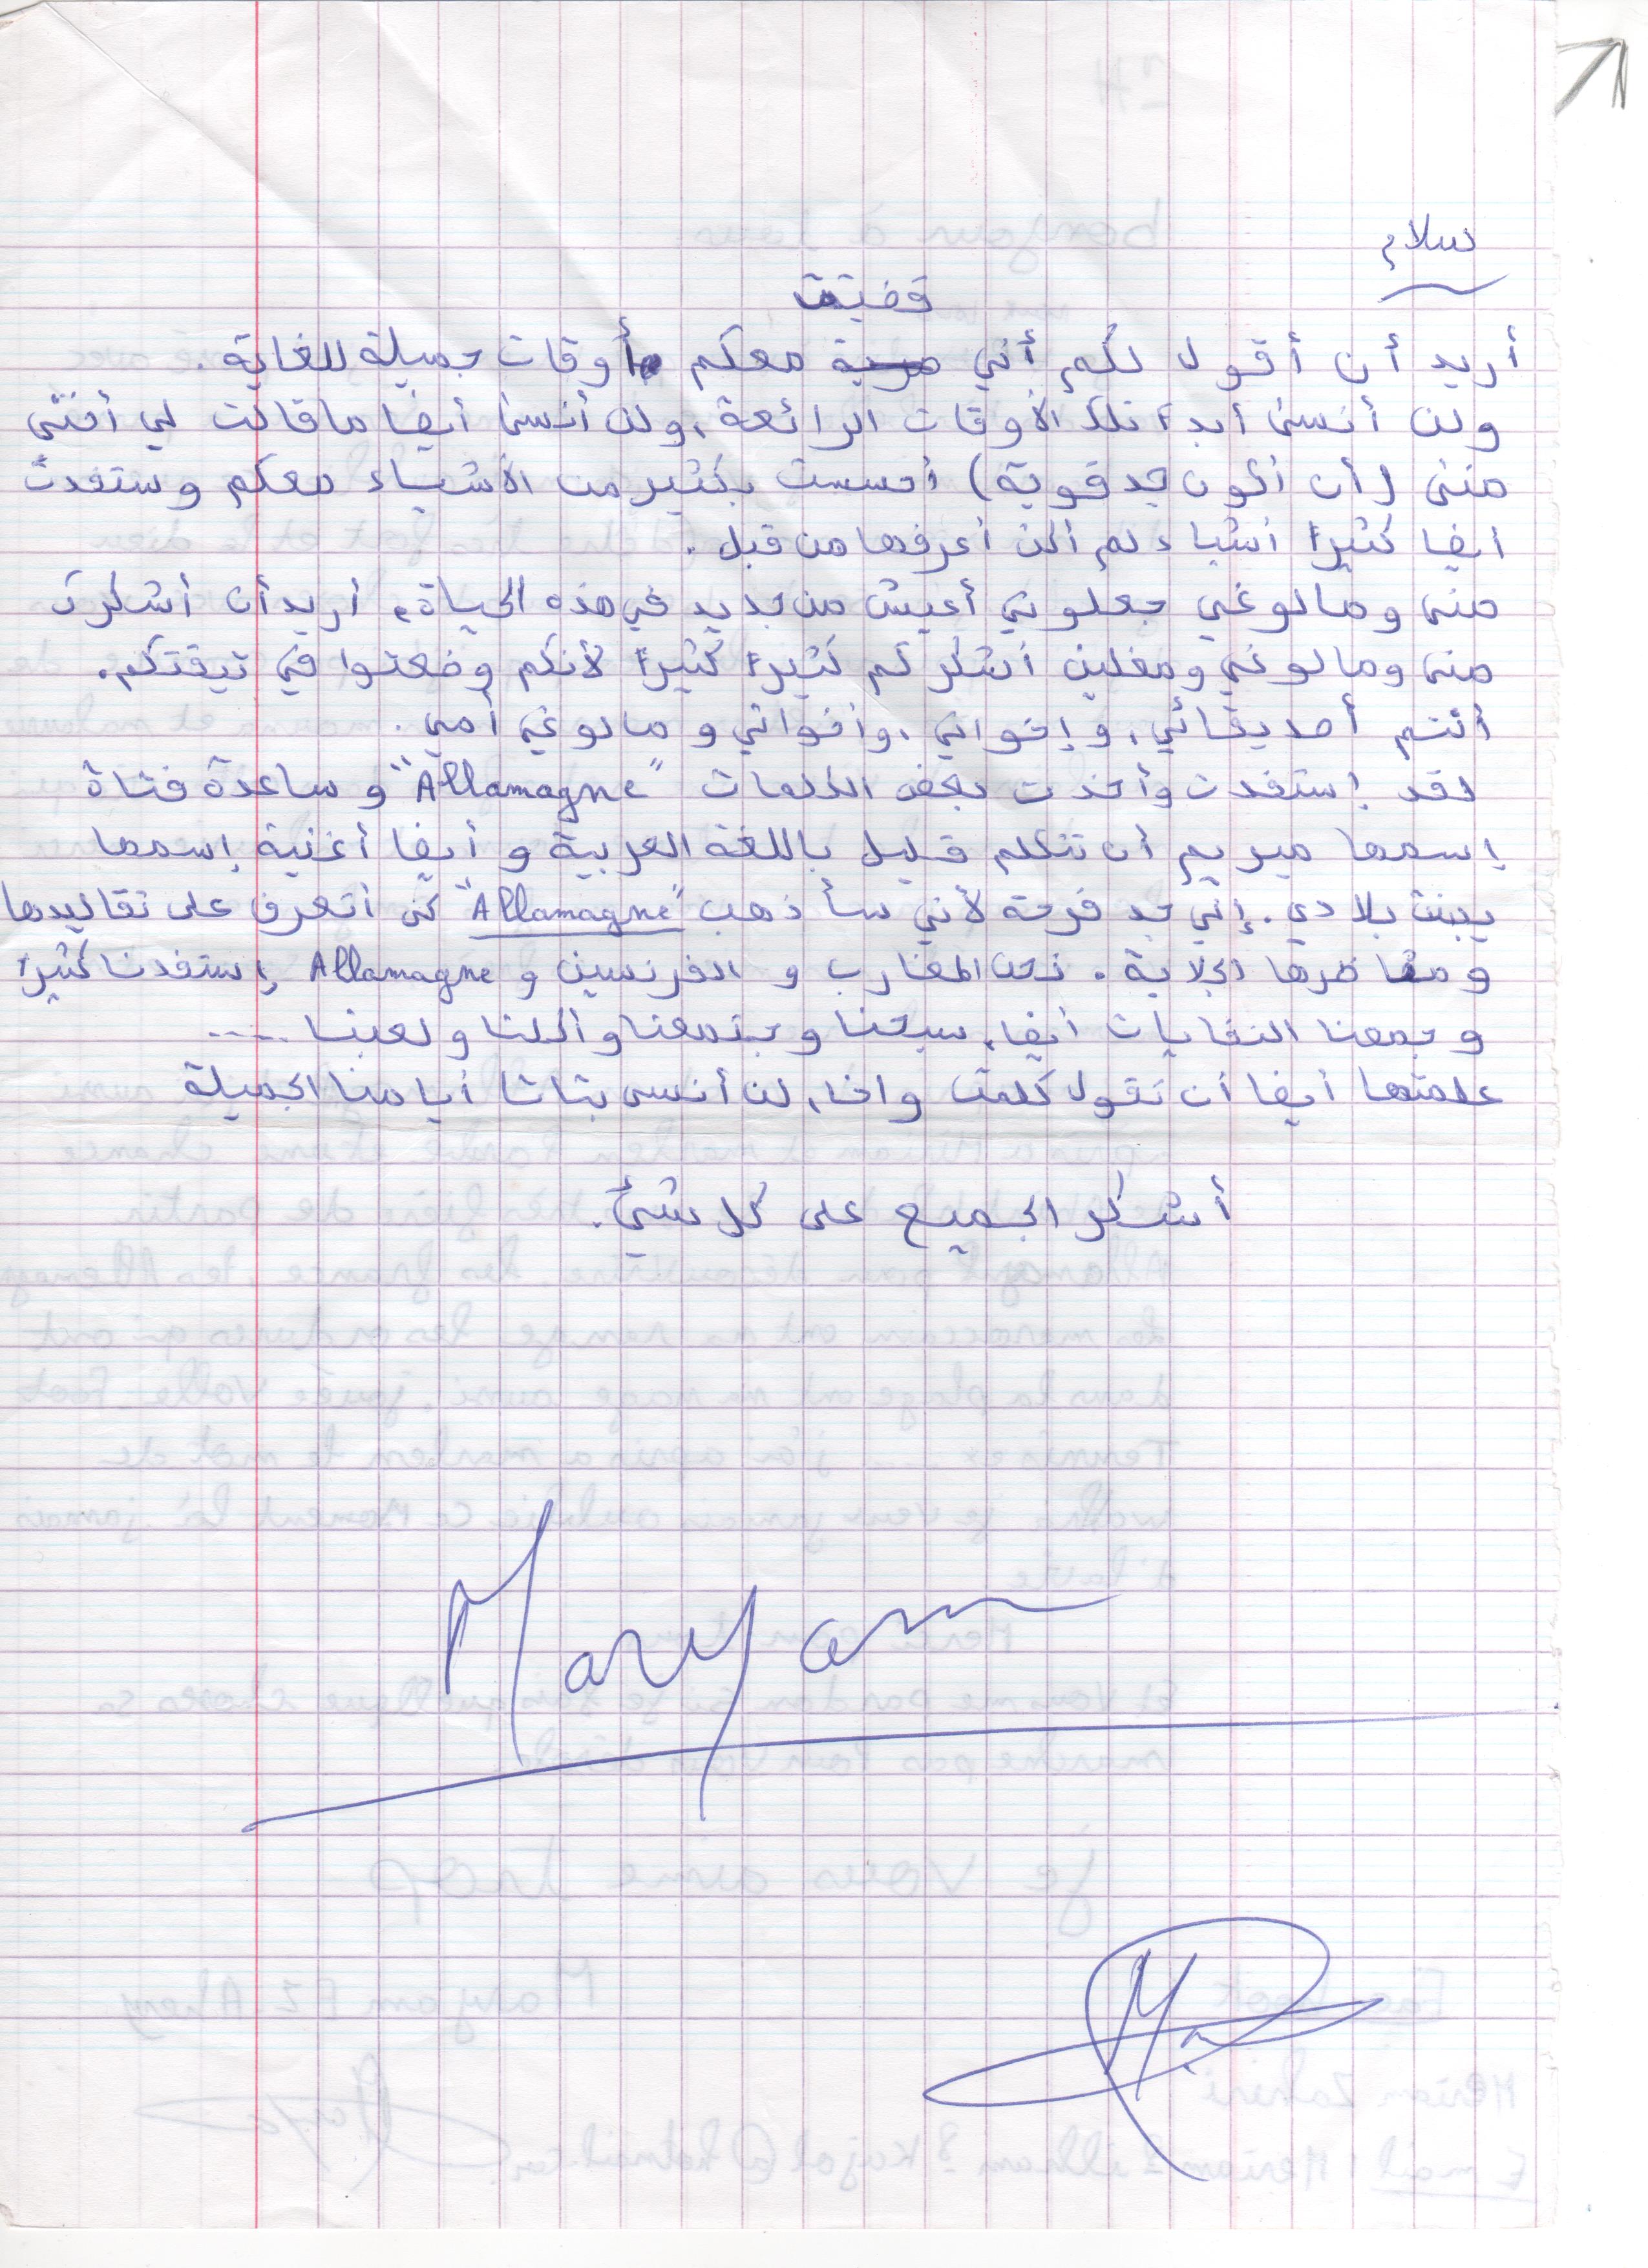 سلام
قضيت
أريد أن أقول لكم أني معكم أوقات جميلة للغاية.
ولن أنسى أبدا تلك الأوقات الرائعة، ولن أنسى أيضا ما قالت لي أختي
منى (أن أكون جد قوية) أحسست بكثير من الأشياء معكم وستفدت
أيضا كثيرا أشياء لم أكن أعرفها من قبل.
منى ومالوغي جعلوني أعيش من جديد في هذه الحياة، أريد أن أشكرك
منى ومالوغي ومغلين أشكركم كثيرا كثيرا لأنكم وضعتوا في تيقتكم.
أنتم أصديقائي، وإخواني، وأخواتي و مالوغي أمي.
لقد إستفدت وأخدت بعض الكلمات "Allamagne" و ساعدة فتاة
إسمها ميريم أن تتكلم قليل باللغة العربية و أيضا أغنية إسمها
يبنت بلادي. إني جد فرحة لأني سأذهب "Allamagne" كي أتعرف على تقاليدها
ومناضرها الجلابة. نحن المغارب و الفرنسين و Allamagne إستفدنا كثيرا
وجمعنا النفايات أيضا، سبحنا وجتمعنا وأكلنا ولعبنا ....
علمتها أيضا أن تقول كلمت واخا، لن أنسى بتاتا أيامنا الجميلة
أشكر الجميع على كل شيئ.
Maryam